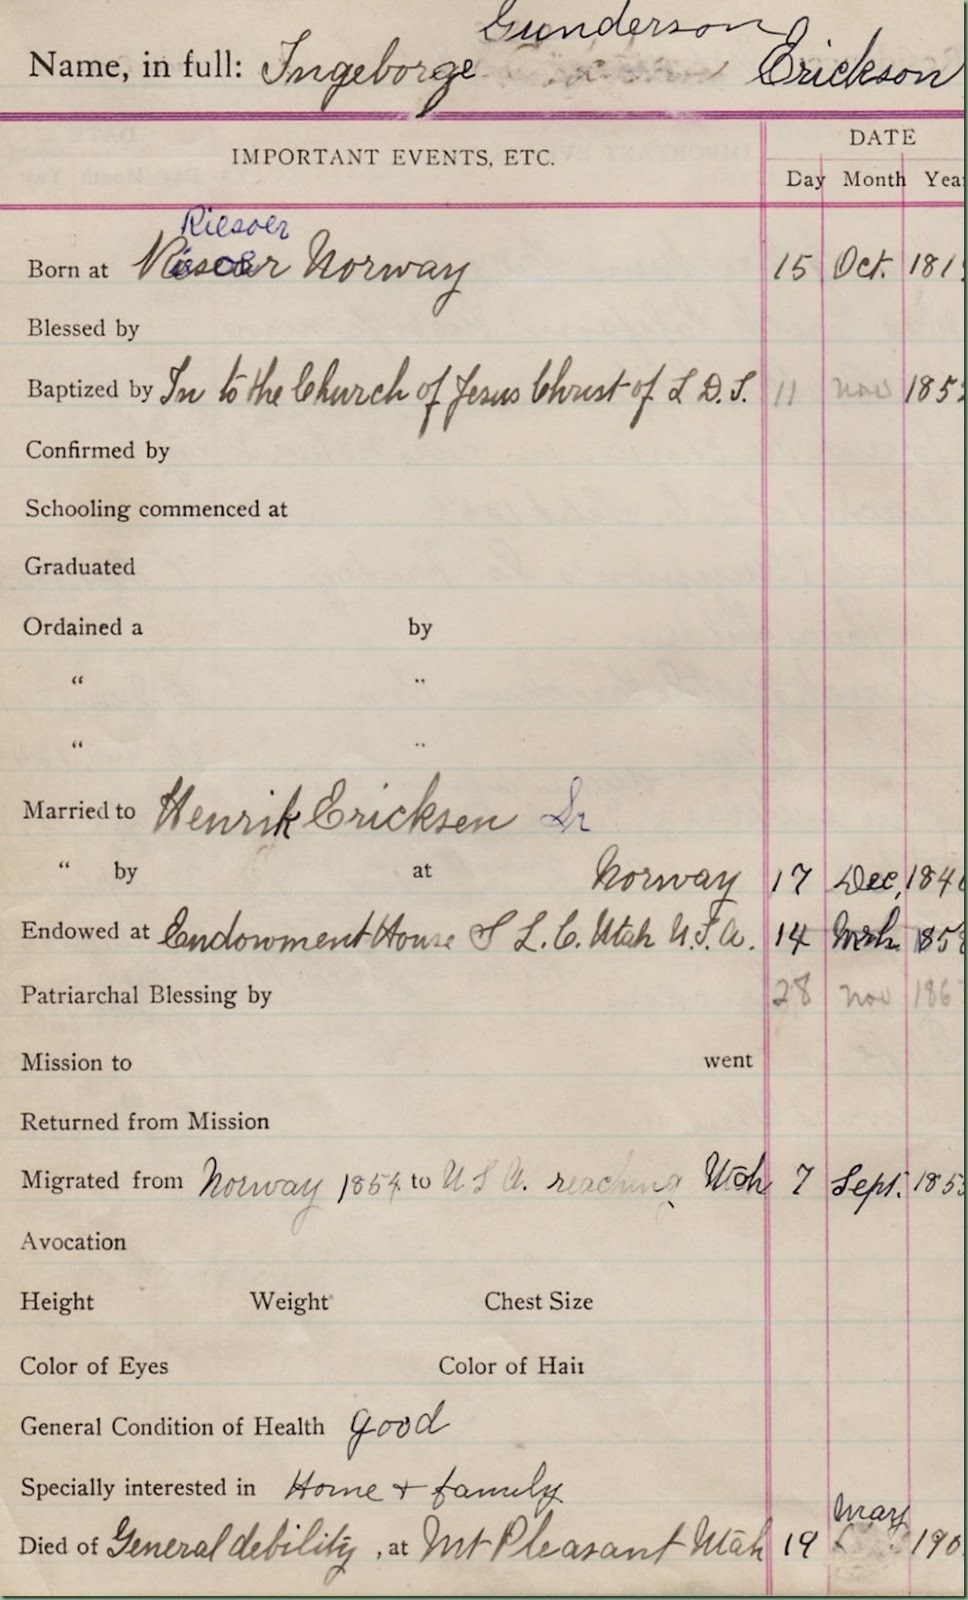 Gunderson
Name, in full: Ingeborge Erickson
IMPORTANT EVENTS, ETC. DATE
Day Month Yea
Riesoer
Born at Norway 15 Oct. 181
Blessed by
Baptized by In to the Church of Jesus Christ of L D. S. 11 Nov 185
Confirmed by
Schooling commenced at
Graduated
Ordained a by
“ “
“ “
Married to Henrik Ericksen Sr
“ by at Norway 17 Dec, 184
Endowed at Endowment House S L. C. Utah U. S. A. 14 Mrh. 185
Patriarchal Blessing by 28 Nov 186
Mission to went
Returned from Mission
Migrated from Norway 1854 to U S A. reaching Utah 7 Sept. 185
Avocation
Height Weight Chest Size
Color of Eyes Color of Hair
General Condition of Health good
Specially interested in Home + family
May
Died of General debility, at Mt Pleasant Utah 19 190